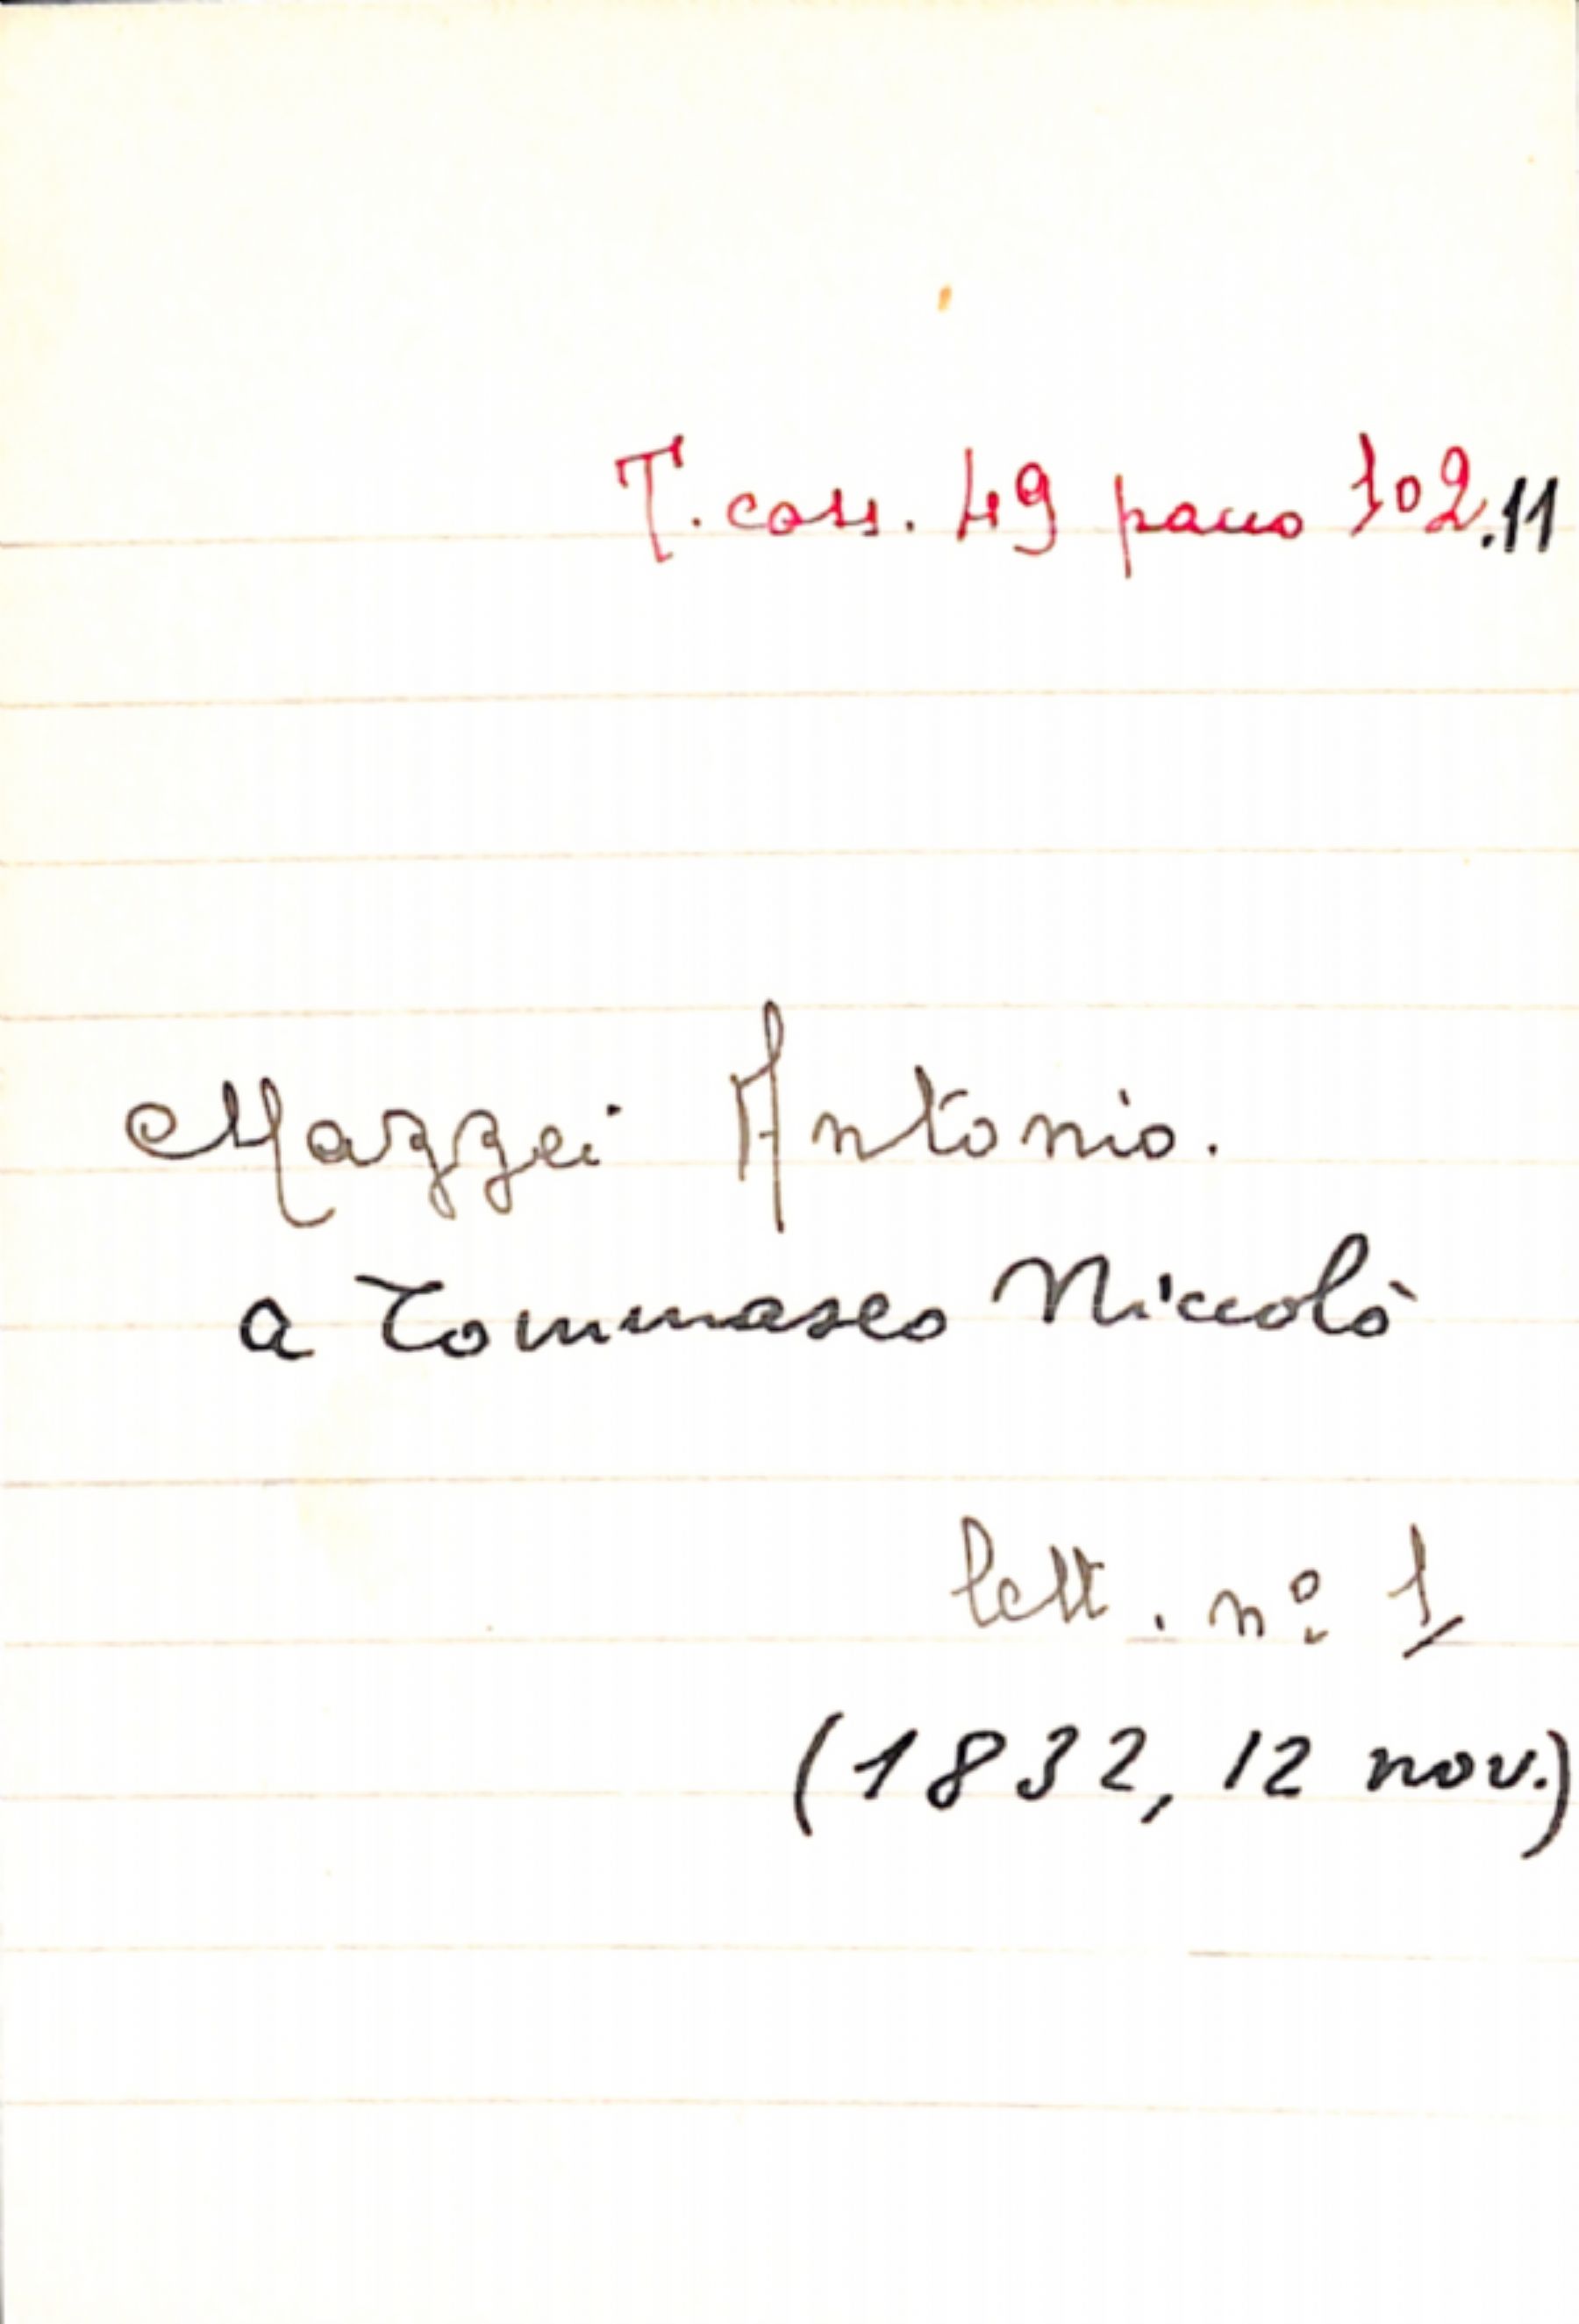 T. cass. 49 pacco 102.11
Mazzei Antonio.
a Tommaseo Niccolò
lett. nº 1
(1832, 12 nov.)